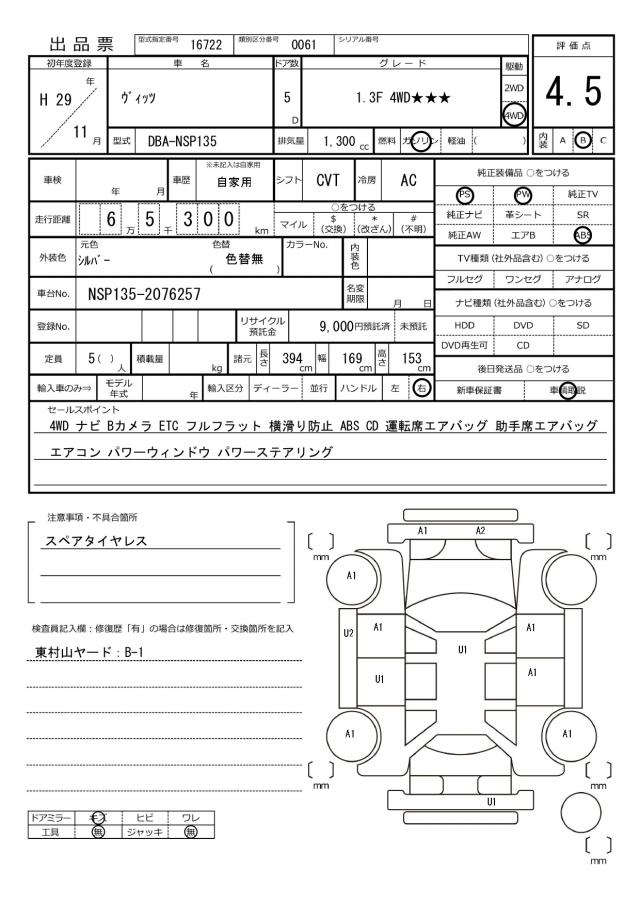 出品票 型式指定番号 16722 類別区分番号 0061 シリアル番号
評価点
4.5
内装 A B C
初年度登録 車 名 ドア数 グレード 駆動
H 29 年 11 月 ヴィッツ 5 D 1.3F 4WD★★★ 2WD 4WD
型式 DBA-NSP135 排気量 1,300 cc 燃料 ガソリン 軽油 ( )
車検 年 月 車歴 ※未記入は自家用 自家用 シフト CVT 冷房 AC
走行距離 6 万 5 千 300 km
○をつける
マイル $ (交換) * (改ざん) # (不明)
外装色 元色 シルバー 色替 ( 色替無 ) カラーNo. 内装色
車台No. NSP135-2076257 名変期限 月 日
登録No. リサイクル預託金 9,000円預託済 未預託
定員 5 ( ) 人 積載量 kg 諸元 長さ 394 cm 幅 169 cm 高さ 153 cm
輸入車のみ⇒ モデル年式 年 輸入区分 ディーラー 並行 ハンドル 左 右
純正装備品 ○をつける
PS PW 純正TV
純正ナビ 革シート SR
純正AW エアB ABS
TV種類 (社外品含む) ○をつける
フルセグ ワンセグ アナログ
ナビ種類 (社外品含む) ○をつける
HDD DVD SD
DVD再生可 CD
後日発送品 ○をつける
新車保証書 車輌取説
セールスポイント
4WD ナビ Bカメラ ETC フルフラット 横滑り防止 ABS CD 運転席エアバッグ 助手席エアバッグ
エアコン パワーウィンドウ パワーステアリング
注意事項・不具合箇所
スペアタイヤレス
検査員記入欄：修復歴「有」の場合は修復箇所・交換箇所を記入
東村山ヤード：B-1
ドアミラー キズ ヒビ ワレ
工具 無 ジャッキ 無
A1 A2
[ ] mm [ ] mm
A1
U2 A1 U1 A1
U1 A1
A1 A1
[ ] mm [ ] mm
U1
[ ] mm